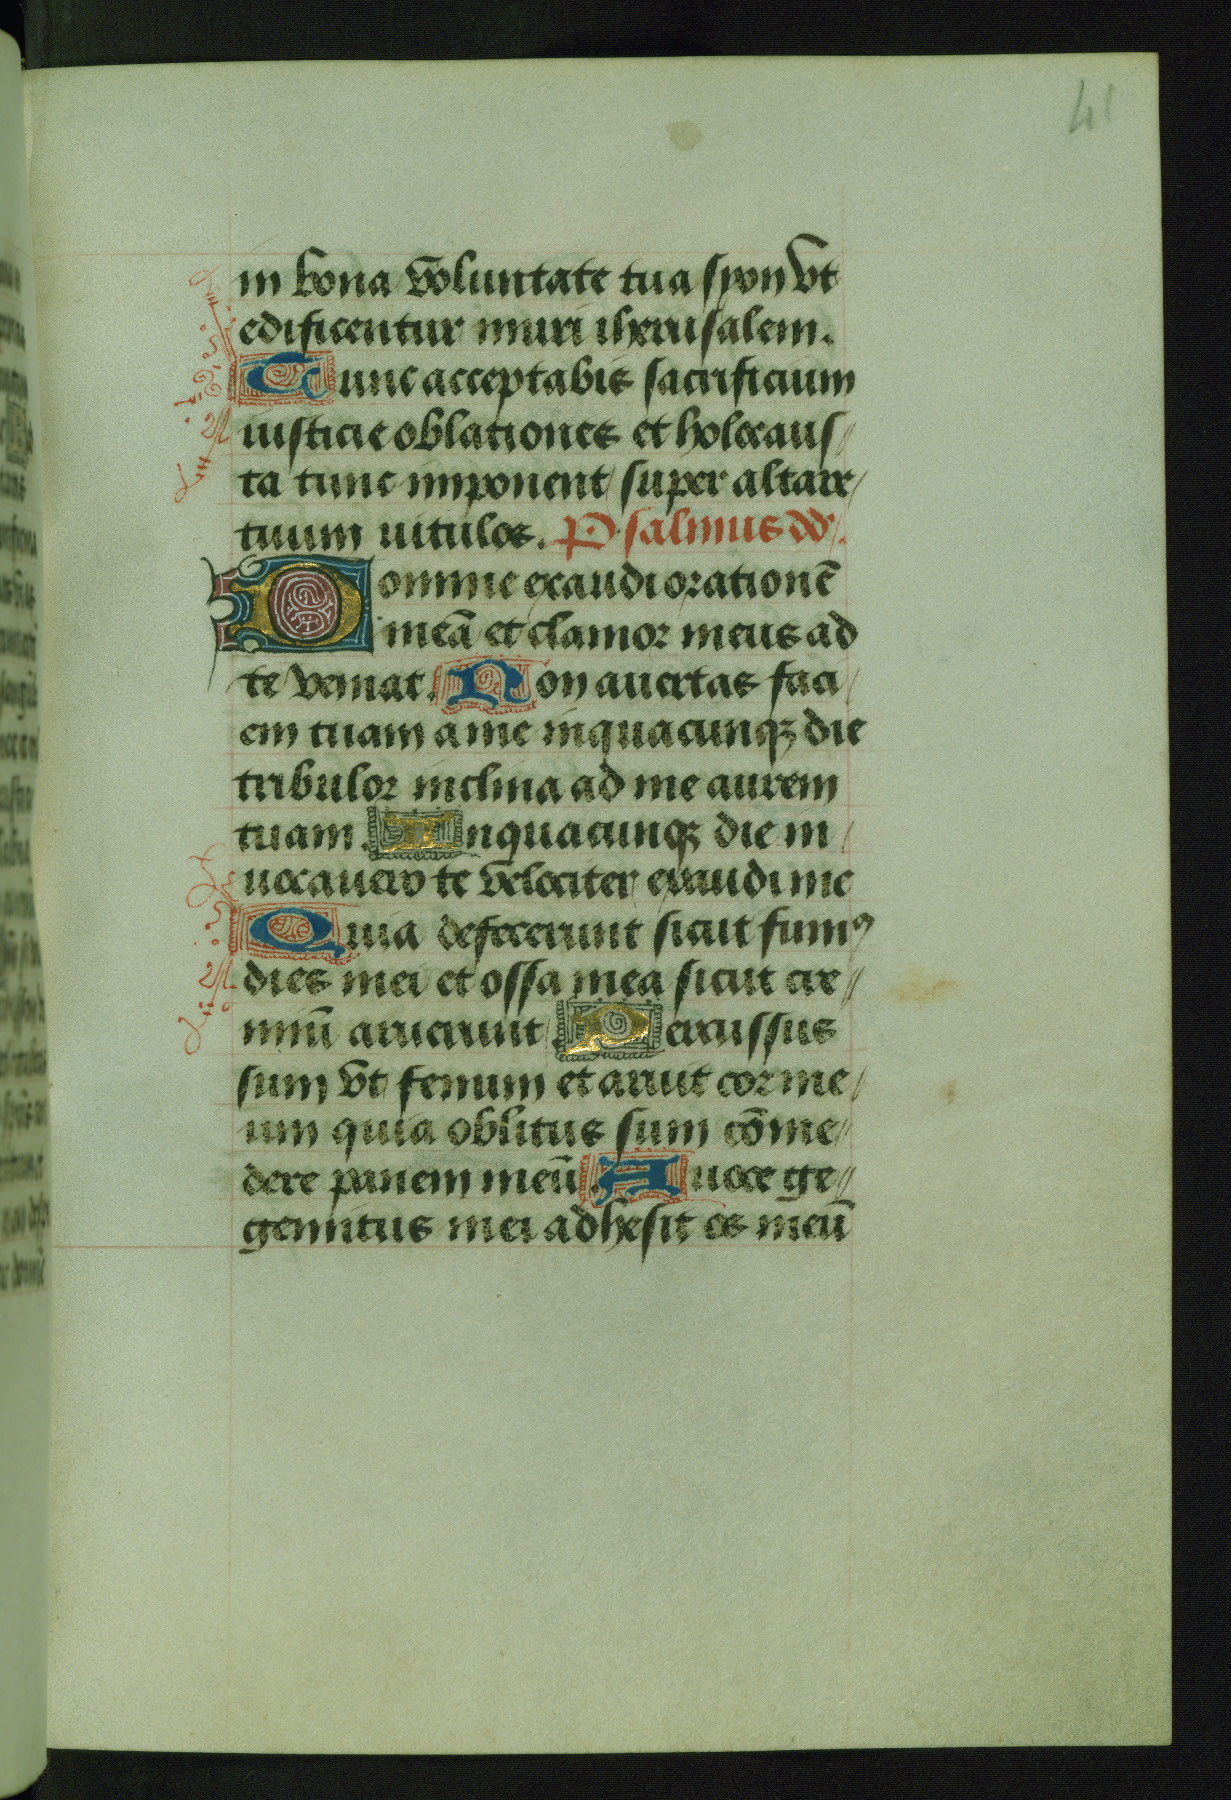 41
in bona voluntate tua syon vt
edificentur muri iherusalem.
Tunc acceptabis sacrificium
iusticie oblationes et holocaus//
ta tunc imponent super altare/
tuum uitulos. Psalmus dd.
Domine exaudi orationē
meā et clamor meus ad
te veniat. Non auertas faci/
em tuam a me in quacunqꝫ die
tribulor inclina ad me aurem
tuam. In quacunqꝫ die in/
uocauero te velociter exaudi me
Quia defecerunt sicut fumꝰ
dies mei et ossa mea sicut cre//
miū aruerunt. Percussus
sum vt fenum et aruit cor me/
um quia oblitus sum cōme//
dere panem meū. A uoce ge//
gemitus mei adhesit os meū